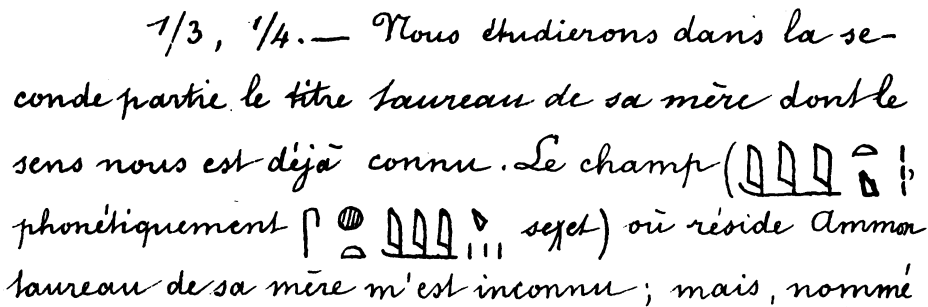 1/3, 1/4. — Nous étudierons dans la se-
conde partie le titre taureau de sa mère dont le
sens nous est déjà connu. Le champ (
phonétiquement ) où réside Ammon
taureau de sa mère m'est inconnu ; mais, nommé